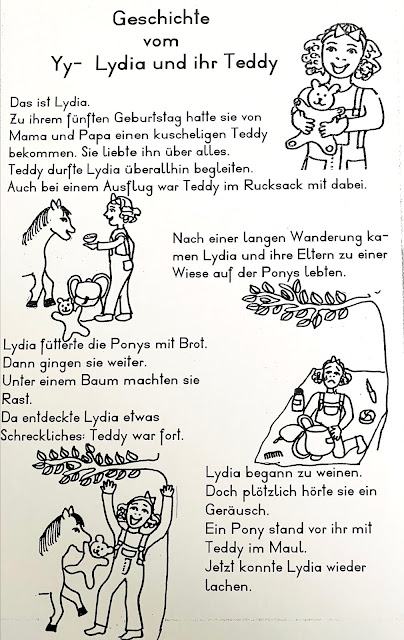 Geschichte
vom
Yy- Lydia und ihr Teddy
Das ist Lydia.
Zu ihrem fünften Geburtstag hatte sie von
Mama und Papa einen kuscheligen Teddy
bekommen. Sie liebte ihn über alles.
Teddy durfte Lydia überallhin begleiten.
Auch bei einem Ausflug war Teddy im Rucksack mit dabei.
Nach einer langen Wanderung ka-
men Lydia und ihre Eltern zu einer
Wiese auf der Ponys lebten.
Lydia fütterte die Ponys mit Brot.
Dann gingen sie weiter.
Unter einem Baum machten sie
Rast.
Da entdeckte Lydia etwas
Schreckliches: Teddy war fort.
Lydia begann zu weinen.
Doch plötzlich hörte sie ein
Geräusch.
Ein Pony stand vor ihr mit
Teddy im Maul.
Jetzt konnte Lydia wieder
lachen.